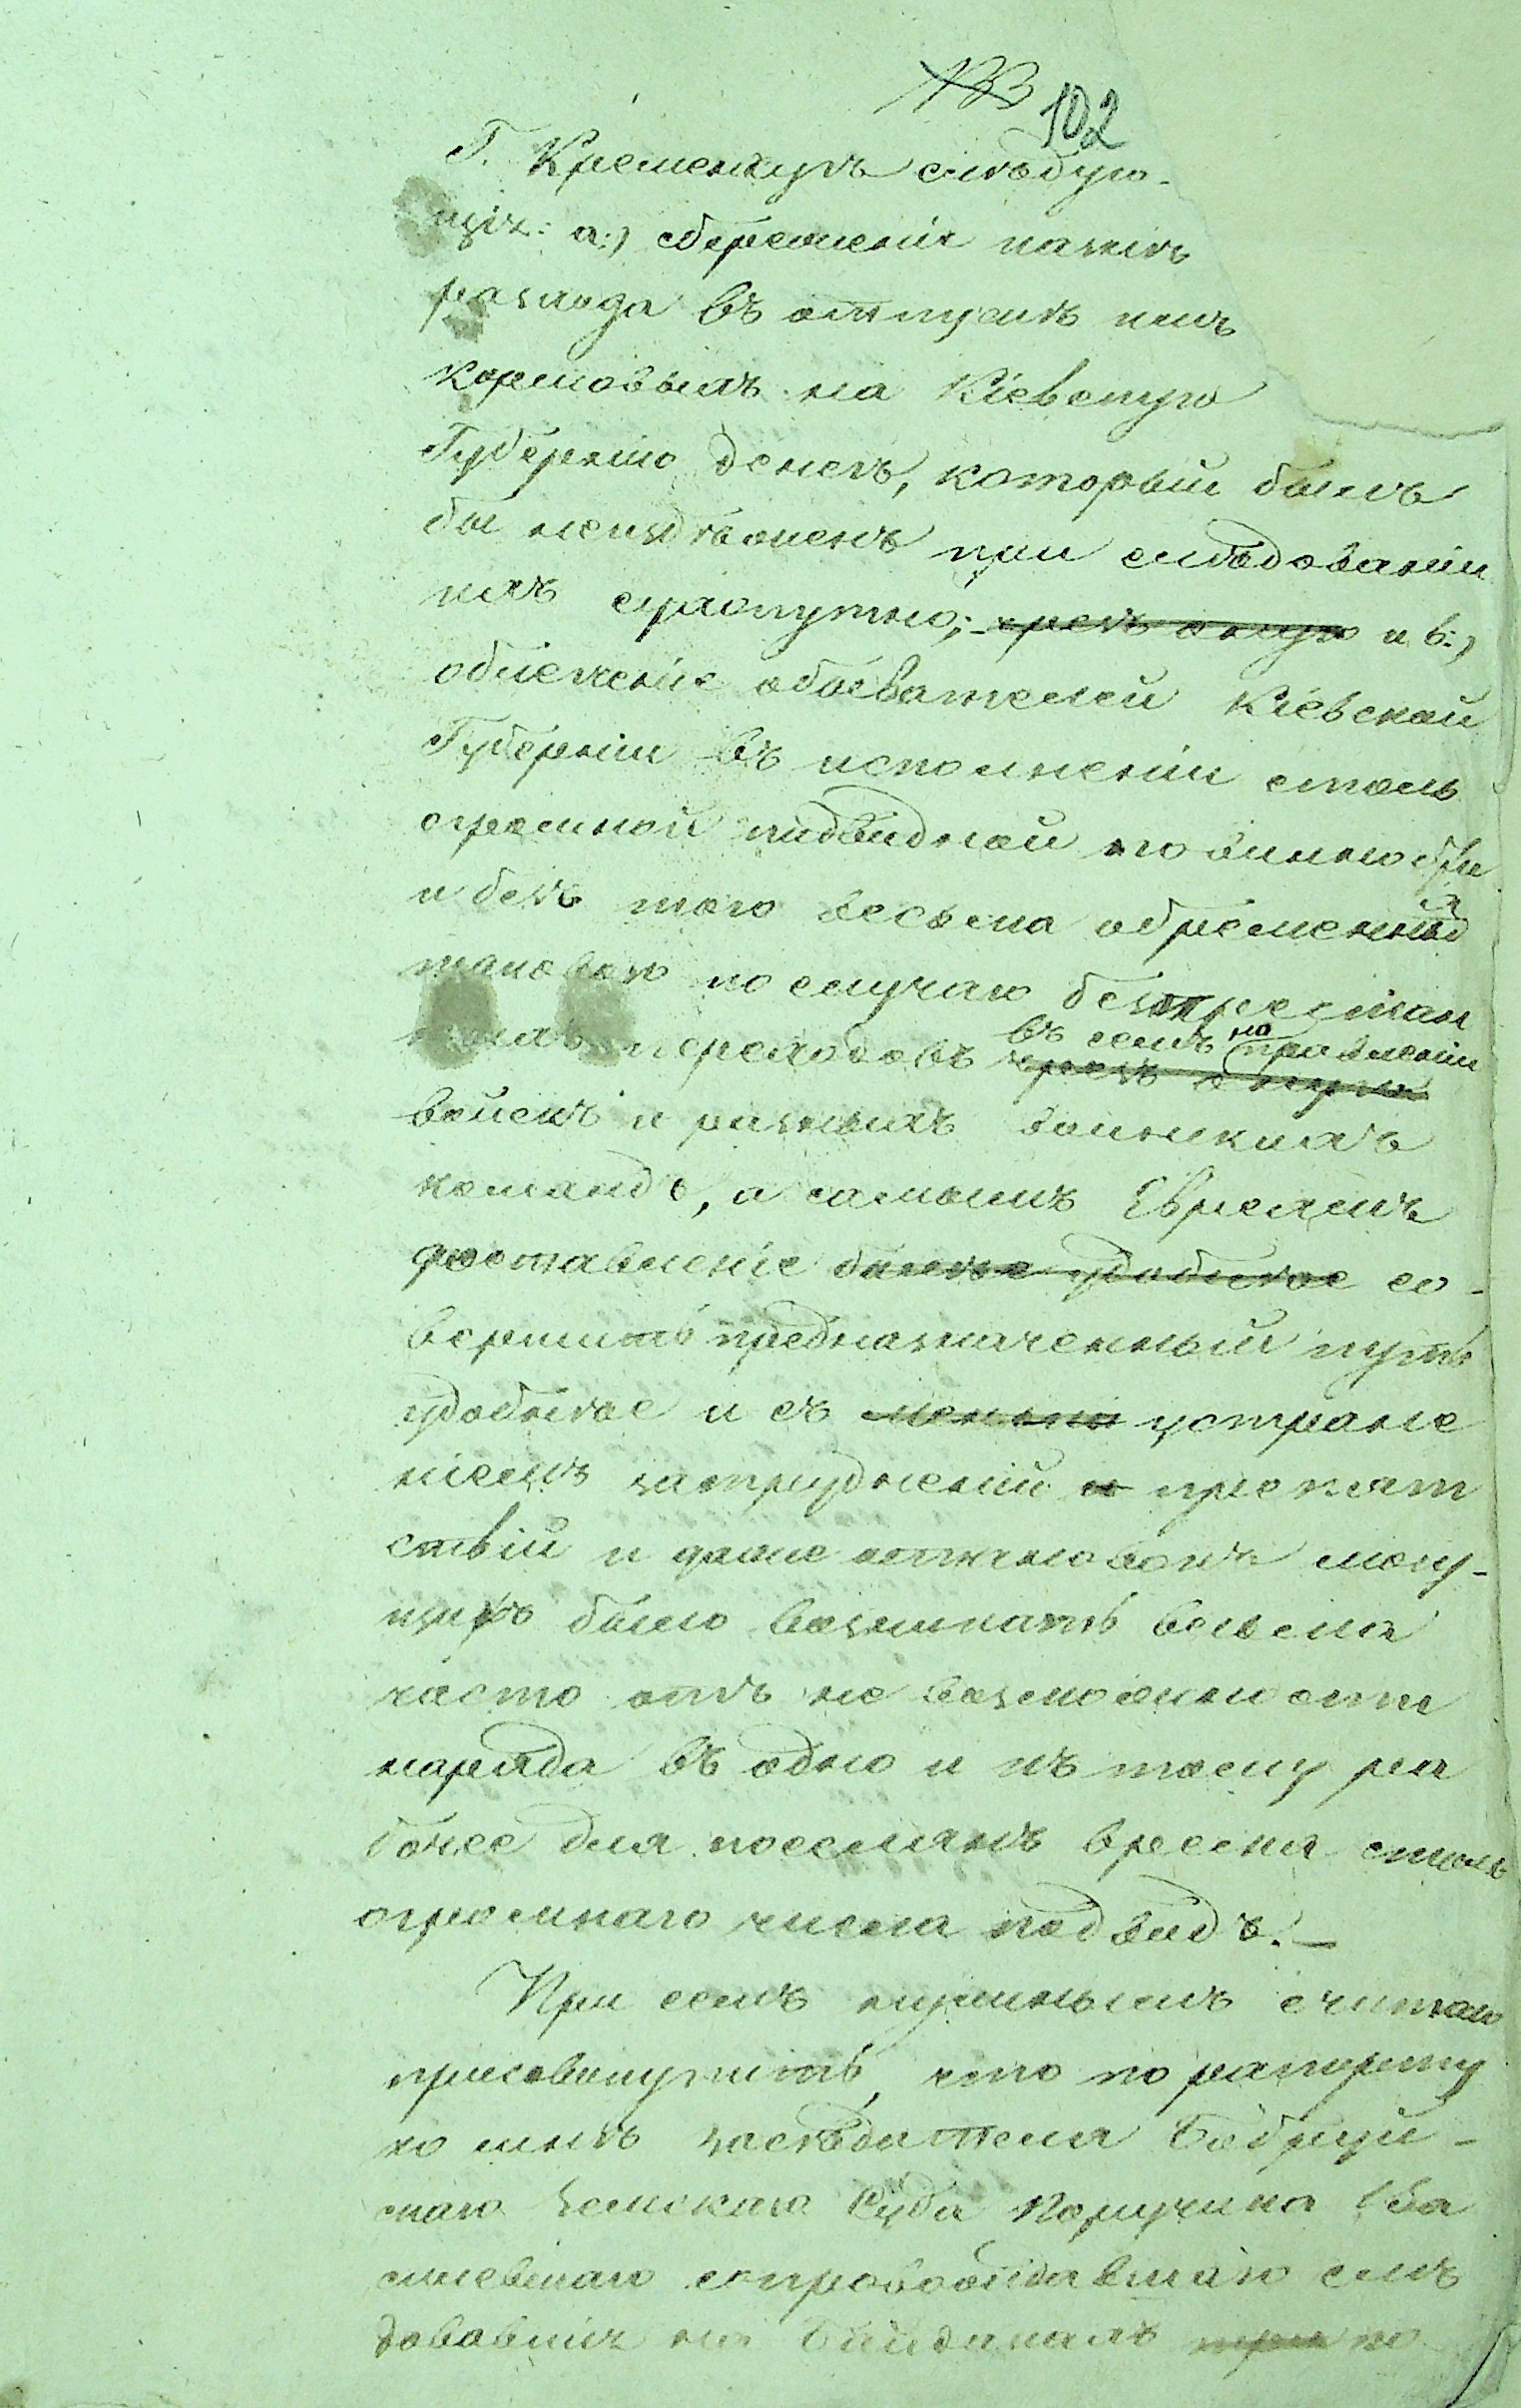 133 102
Г. Кременчугъ слѣдую-
щія: а.) сбереженія казнѣ
расхода въ отпускѣ имъ
кормовыхъ на Кіевскую
Губернію денегъ, который былъ
бы неизбѣженъ при слѣдованіи
ихъ сухопутно; чрезъ оную и в.)
облегченіе обывателей Кіевской
Губерніи въ исполненіи столь
огромной подводной повинности
и безъ того весьма обремененныхъ
таковою по случаю безпрестан
ныхъ переходовъ чрезъ оную въ семъ направленіи
войскъ и разныхъ воинскихъ
командъ, а самымъ Евреямъ
доставленіе болѣе удобное со-
вершить предназначенный путь
удобнѣе и съ устране
ніемъ затрудненій и препят
ствій и даже остановокъ могу-
щихъ было возникать весьма
часто отъ не возможности
наряда въ одно и къ тому ра
бочее для поселянъ время столь
огромнаго числа подводъ.—
При семъ нужнымъ считаю
присовокупить, что по рапорту
ко мнѣ засѣдателя Бобруй-
скаго Земскаго Суда Поручика Ва
силевскаго сопровождавшаго слѣ
довавшихъ на Байдакахъ при по